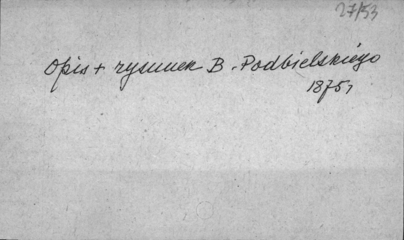 27/53
Opis + rysunek B. Podbielskiego
1875r